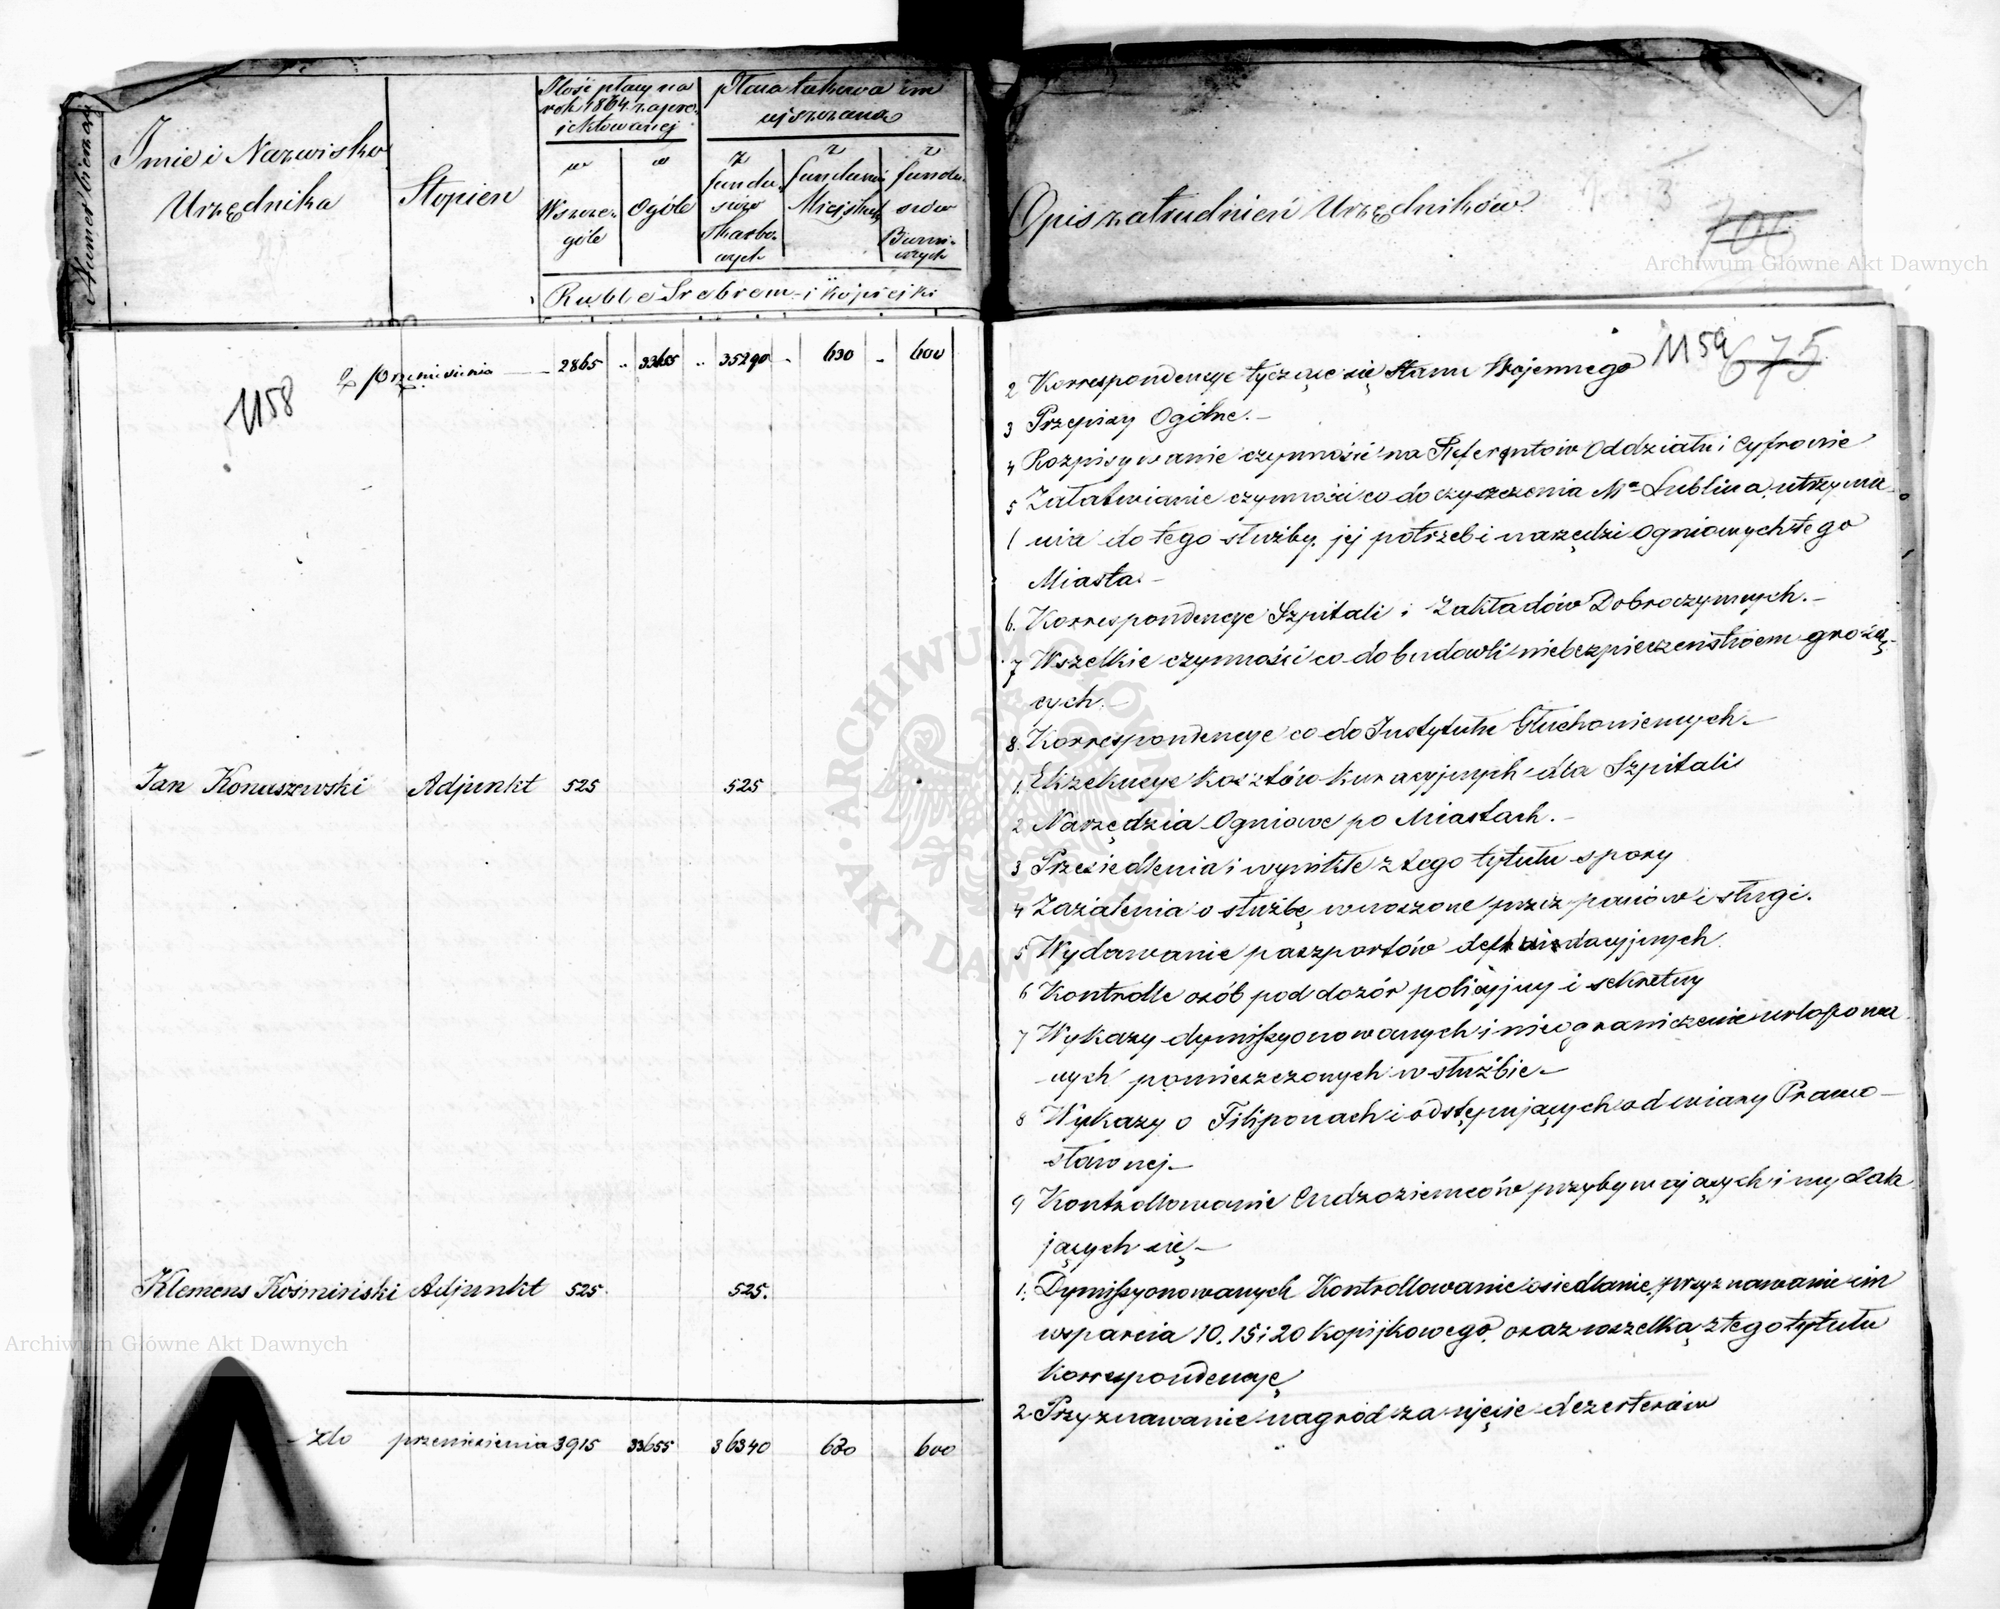 Numer bieżący
Imie i Nazwisko
Urzędnika
Stopien
Ilość płacy na
rok 1864 zapro-
jektowanej
w
Szcze-
góle
w
Ogóle
Płaca takowa im
wyznaczona
z
fundu-
szów
Skarbo-
wych
z
funduszów
Miejskich
z
fundu-
szów
Ruble Srebrem i kopiejki
Opis zatrudnień Urzędników
3
706
1158
Z przeniesienia — 2865 „ 33655 „ 35290 „ 630 „ 600
Jan Konuszewski Adjunkt 525 525
Klemens Kośmiński Adjunkt 525. 525.
do przeniesienia 3915 33655 36340 630 600
1159
675
2 Korrespondencye tyczące się Stanu Wojennego
3 Przepisy Ogólne. —
4 Rozpisywanie czynności na Referentów Oddziału i Cyfrowie
5 Załatwianie czynności co do czyszczenia Mta Lublina, utrzyma-
nia do tego służby, jej potrzeb i narzędzi Ogniowych tego
Miasta. —
6. Korrespondencye Szpitali i Zakładów Dobroczynnych. —
7 Wszelkie czynności co do budowli niebezpieczeństwem grożą-
cych. —
8. Korrespondencye co do Instytutu Głuchoniemych —
1. Ekzekucye kosztów kuracyjnych dla Szpitali
2 Narzędzia Ogniowe po Miastach. —
3 Przesiedlenia i wynikłe z tego tytułu spory
4 Zażalenia o służbę wnoszone przez panów i sługi.
5 Wydawanie paszportów
6 Kontrolle osób pod dozór policyjny i sekretny
7 Wykazy dymissyonowanych i nieograniczenie urlopowa
nych pomieszczonych w służbie —
8 Wykazy o Filiponach i odstępujących od wiary Prawo-
sławnej —
9 Kontrollowanie Cudzoziemców przybywających i wydala
jących się —
1. Dymissyonowanych Kontrollowanie osiedlanie, przyznawanie im
wsparcia 10. 15 i 20 kopijkowego, oraz wszelką z tego tytułu
Korrespondencyę
2 Przyznawanie nagród za ujęcie dezerterów
Archiwum Główne Akt Dawnych
Archiwum Główne Akt Dawnych
ARCHIWUM GŁÓWNE AKT DAWNYCH